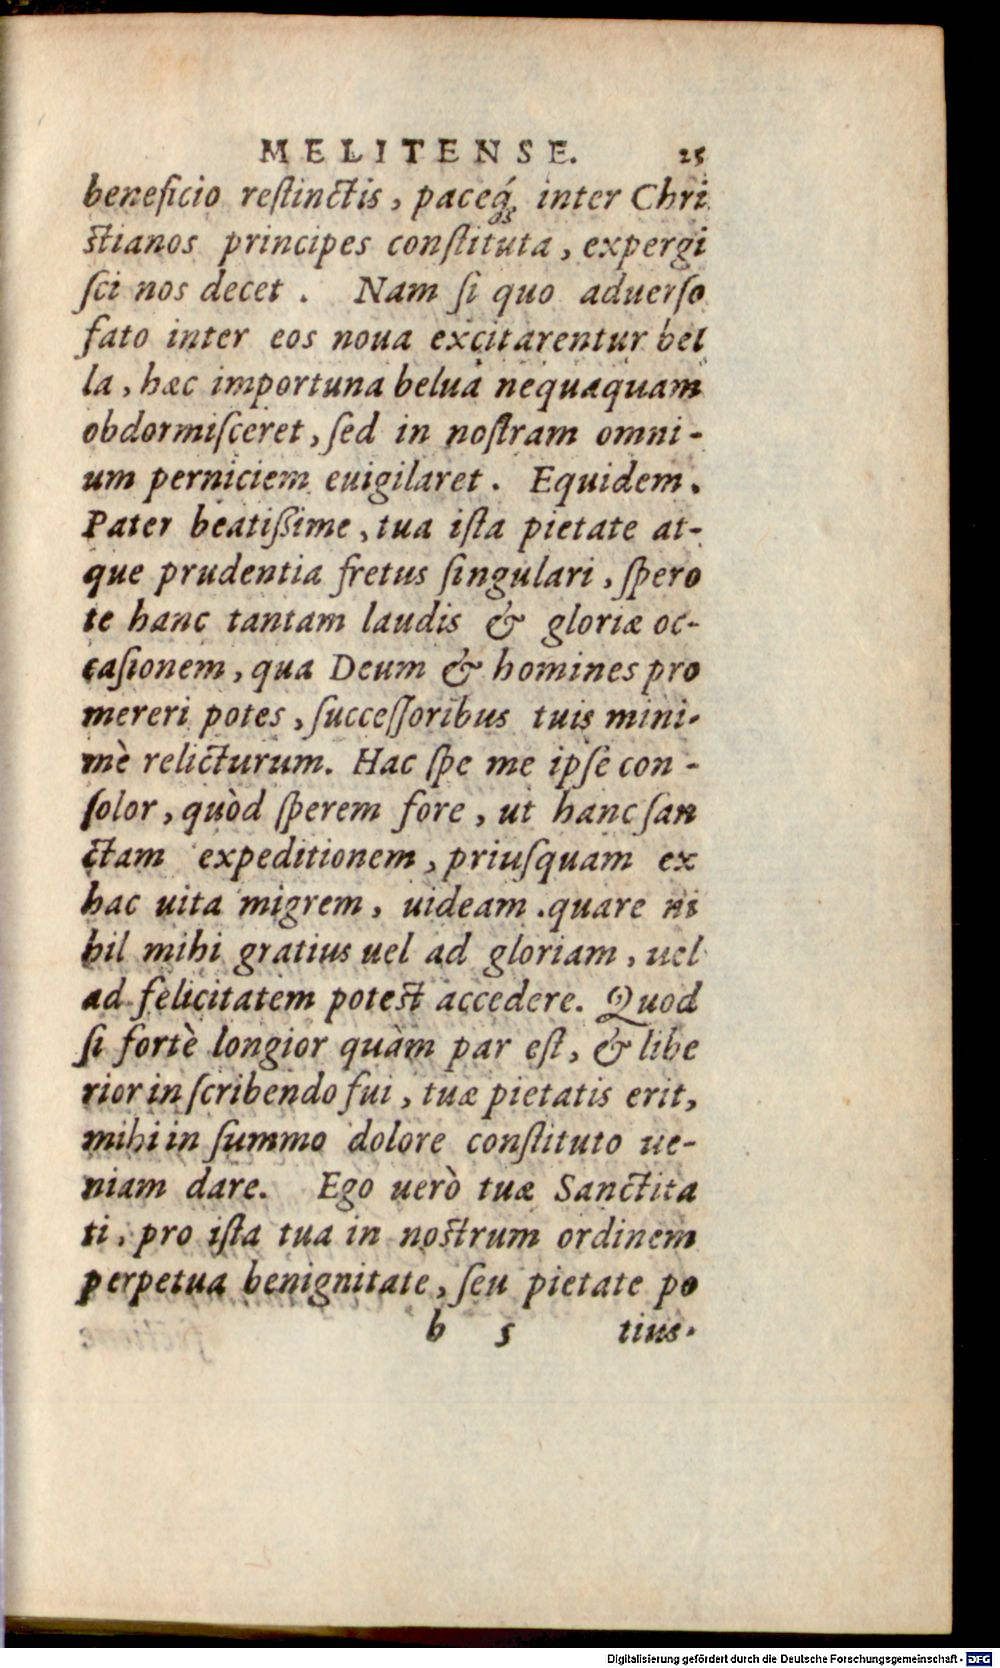 MELITENSE. 25
beneficio reſtinctis, paceq́; inter Chri
ſtianos principes conſtituta, expergi
ſci nos decet. Nam ſi quo aduerſo
fato inter eos noua excitarentur bel
la, hæc importuna belua nequaquam
obdormiſceret, ſed in noſtram omni-
um perniciem euigilaret. Equidem.
Pater beatiſsime, tua iſta pietate at-
que prudentia fretus ſingulari, ſpero
te hanc tantam laudis & gloriæ oc-
caſionem, qua Deum & homines pro
mereri potes, ſucceſſoribus tuis mini-
mè relicturum. Hac ſpe me ipſe con-
ſolor, quòd ſperem fore, ut hanc ſan
ctam expeditionem, priuſquam ex
hac uita migrem, uideam. quare ni
hil mihi gratius uel ad gloriam, uel
ad felicitatem poteſt accedere. Quod
ſi fortè longior quàm par eſt, & libe
rior in ſcribendo fui, tuæ pietatis erit,
mihi in ſummo dolore conſtituto ue-
niam dare. Ego uerò tuæ Sanctita
ti, pro iſta tua in noſtrum ordinem
perpetua benignitate, ſeu pietate po
b 5 tius.
Digitalisierung gefördert durch die Deutsche Forschungsgemeinschaft - DFG